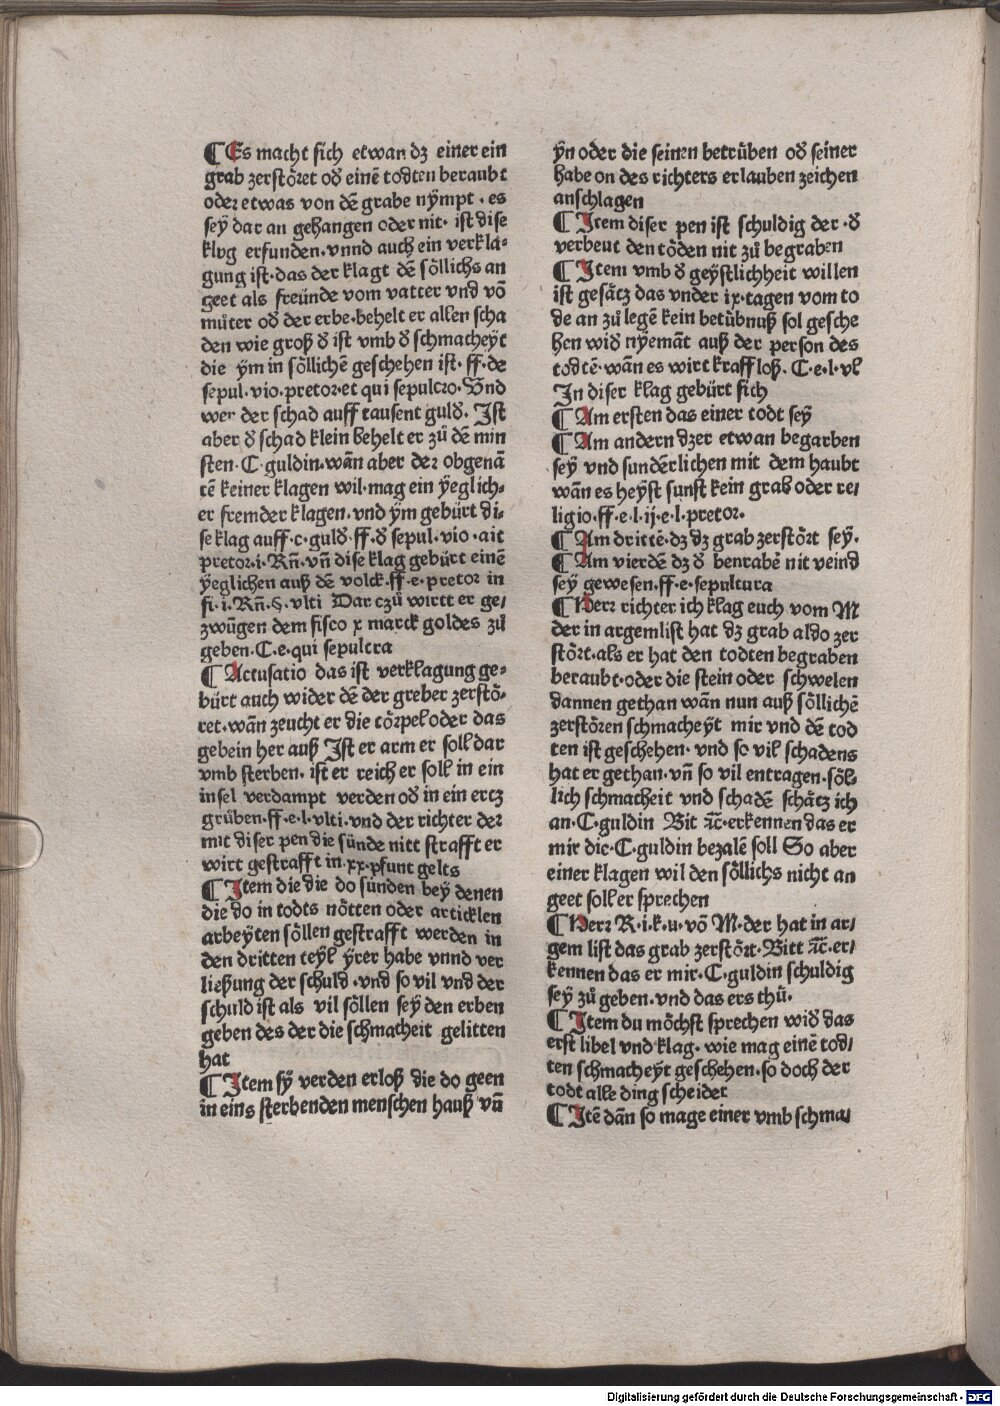 ¶ Es macht sich etwan dz einer ein
grab zerstöret od̕ einē todten beraubt
oder etwas von dē grabe nÿmpt · es
seÿ dar an gehangen oder nit · ist dise
klog erfunden · vnnd auch ein verkla⸗
gung ist · das der klagt dē söllichs an
geet als freünde vom vatter vnd võ
můter od̕ der erbe · behelt er allen scha
den wie groß d̕ ist vmb d̕ schmacheÿt
die ÿm in söllichē geschehen ist · ff · de
sepul · vio · pretor · et qui sepulcro · Vnd
wer der schad auff tausent guld̕ · Ist
aber d̕ schad klein behelt er zů dē min
sten · C · guldin · wān aber der obgenā
tē keiner klagen wil · mag ein ÿeglich⸗
er fremder klagen · vnd ÿm gebürt di⸗
se klag auff · c · guld̕ · ff · d̕ sepul · vio · ait
pretor · i · Rn̄ · vn̄ dise klag gebürt einē
ÿeglichen auß dē volck · ff · e · pretor in
fi · i · Rn̄ · § · vlti Dar czů wirtt er ge⸗
zwūgen dem fisco x marck goldes zů
geben · C · e · qui sepulcra
¶ Actusatio das ist verklagung ge⸗
bürt auch wider dē der greber zerstö⸗
ret · wān zeucht er die cörpel oder das
gebein her auß Ist er arm er soll dar
vmb sterben · ist er reich er soll in ein
insel verdampt verden od̕ in ein ertz
grüben · ff · e · l · vlti · vnd der richter der
mit diser pen die sünde nitt strafft er
wirt gestrafft in · xx · pfunt gelts
¶ Item die die do sünden beÿ denen
die do in todts nötten oder articklen
arbeÿten söllen gestrafft werden in
den dritten teÿl ÿrer habe vnnd ver
liessung der schuld · vnd so vil vnd der
schuld ist als vil söllen seÿ den erben
geben des der die schmacheit gelitten
hat
¶ Item sÿ verden erloß die do geen
in eins sterbenden menschen hauß vn̄
ÿn oder die seinen betrüben od̕ seiner
habe on des richters erlauben zeichen
anschlagen
¶ Item diser pen ist schuldig der · d̕
verbeut den töden nit zů begraben
¶ Item vmb d̕ geÿstlichheit willen
ist gesätz das vnder ix · tagen vom to
de an zů legē kein betübnuß sol gesche
hen wid̕ nÿemāt auß der person des
todtē · wān es wirt krafftloß · C · e · l · vl
In diser klag gebürt sich
¶ Am ersten das einer todt seÿ
¶ Am andern dz er etwan begarben
seÿ vnd sundērlichen mit dem haubt
wān es heÿst sunst kein grab oder re⸗
ligio · ff · e · l · ij · e · l · pretor ·
¶ Am drittē · dz dz grab zerstört seÿ ·
¶ Am vierdē dz d̕ benrabē nit veind
seÿ gewesen · ff · e · sepultura
¶ Herr richter ich klag euch vom M
der in argemlist hat dz grab aldo zer
stört · als er hat den todten begraben
beraubt · oder die stein oder schwelen
dannen gethan wān nun auß söllichē
zerstören schmacheÿt mir vnd dē tod
ten ist geschehen · vnd so vil schadens
hat er gethan · vn̄ so vil entragen · söl⸗
lich schmacheit vnd schadē schätz ich
an · C · guldin Bit ꝛc̄ · erkennen das er
mir dic · C · guldin bezalē soll So aber
einer klagen wil den söllichs nicht an
geet soll er sprechen
¶ Herr R · i · k · u · võ M · der hat in ar⸗
gem list das grab zerstört · Bitt ꝛc̄ · er⸗
kennen das er mir · C · guldin schuldig
seÿ zů geben · vnd das ers thů ·
¶ Item du möchst sprechen wid̕ das
erst libel vnd klag · wie mag einē tod⸗
ten schmacheÿt geschehen · so doch der
todt alle ding scheider
¶ Itē dān so mage einer vmb schma⸗
Digitalisierung gefördert durch die Deutsche Forschungsgemeinschaft - DFG